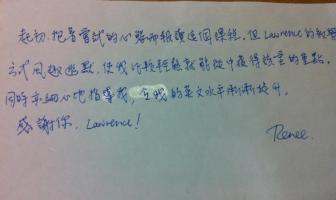 起初,抱着嘗試的心態而報讀這個課程,但Lawrence的教學
方式風趣幽默,使我比較輕鬆就能從中獲得該堂的重點,
同時亦細心地指導我,令我的英文水平漸漸提升。
感謝你, Lawrence!
Renee